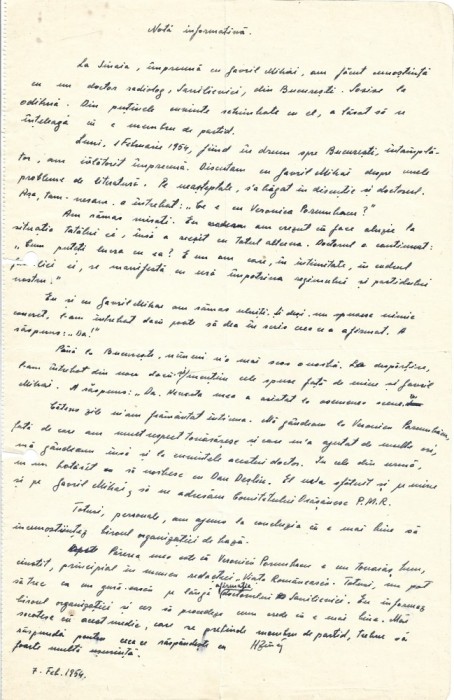 Notă informativă.
La Sinaia, împreună cu Gavril Mihai, am făcut cunoștință
cu un doctor radiolog, Sanilievici, din București. Sosise la
odihnă. Din puținele cuvinte schimbate cu el, a lăsat să se
înțeleagă că e membru de partid.
Luni, 1 Februarie 1954, fiind în drum spre București, întâmplă-
tor, am călătorit împreună. Discutam cu Gavril Mihai despre unele
probleme de literatură. Pe neașteptate, s'a băgat în discuție și doctorul.
Așa, tam-nesam a întrebat: „Ce e cu Veronica Porumbacu?"
Am rămas mirați. Eu am crezut că face aluzie la
situația tatălui ei, însă a reieșit cu totul altceva. Doctorul a continuat:
„Cum puteți lucra cu ea? E un om care, în intimitate, în cadrul
familiei ei, se manifestă cu ură împotriva regimului și partidului
nostru."
Eu și cu Gavril Mihai am rămas uluiți. Și deși nu spusese nimic
concret, l-am întrebat dacă poate să dea în scris ceea ce a afirmat. A
răspuns: „Da!"
Până la București, nimeni n'a mai scos o vorbă. La despărțire,
l-am întrebat din nou dacă-și menține cele spuse față de mine și Gavril
Mihai. A răspuns: „Da. Nevasta mea a asistat la asemenea scene."
Câteva zile m'am frământat intens. Mă gândeam la Veronica Porumbacu,
față de care am mult respect tovărășesc și care m'a ajutat de multe ori,
mă gândeam însă și la cuvintele acestui doctor. În cele din urmă,
m'am hotărât ca să vorbesc cu Dan Deșliu. El m'a sfătuit și pe mine
și pe Gavril Mihai, să ne adresăm Comitetului Orășănesc P.M.R.
Totuși, personal, am ajuns la concluzia că e mai bine să
încunoștiințez biroul organizației de bază.
Părerea mea este că Veronica Porumbacu e un tovarăș bun,
cinstit, principial în munca redacției „Viața Românească". Totuși, nu pot
să trec ca un gură-cască pe lângă afirmația doctorului Sanilievici. Eu informez
biroul organizației și cer să procedeze cum crede că e mai bine. Mai
socotesc că acest medic, care se pretinde membru de partid, trebue să
răspundă pentru ceea ce răspândește cu
foarte multă ușurință.
7. Feb. 1954.